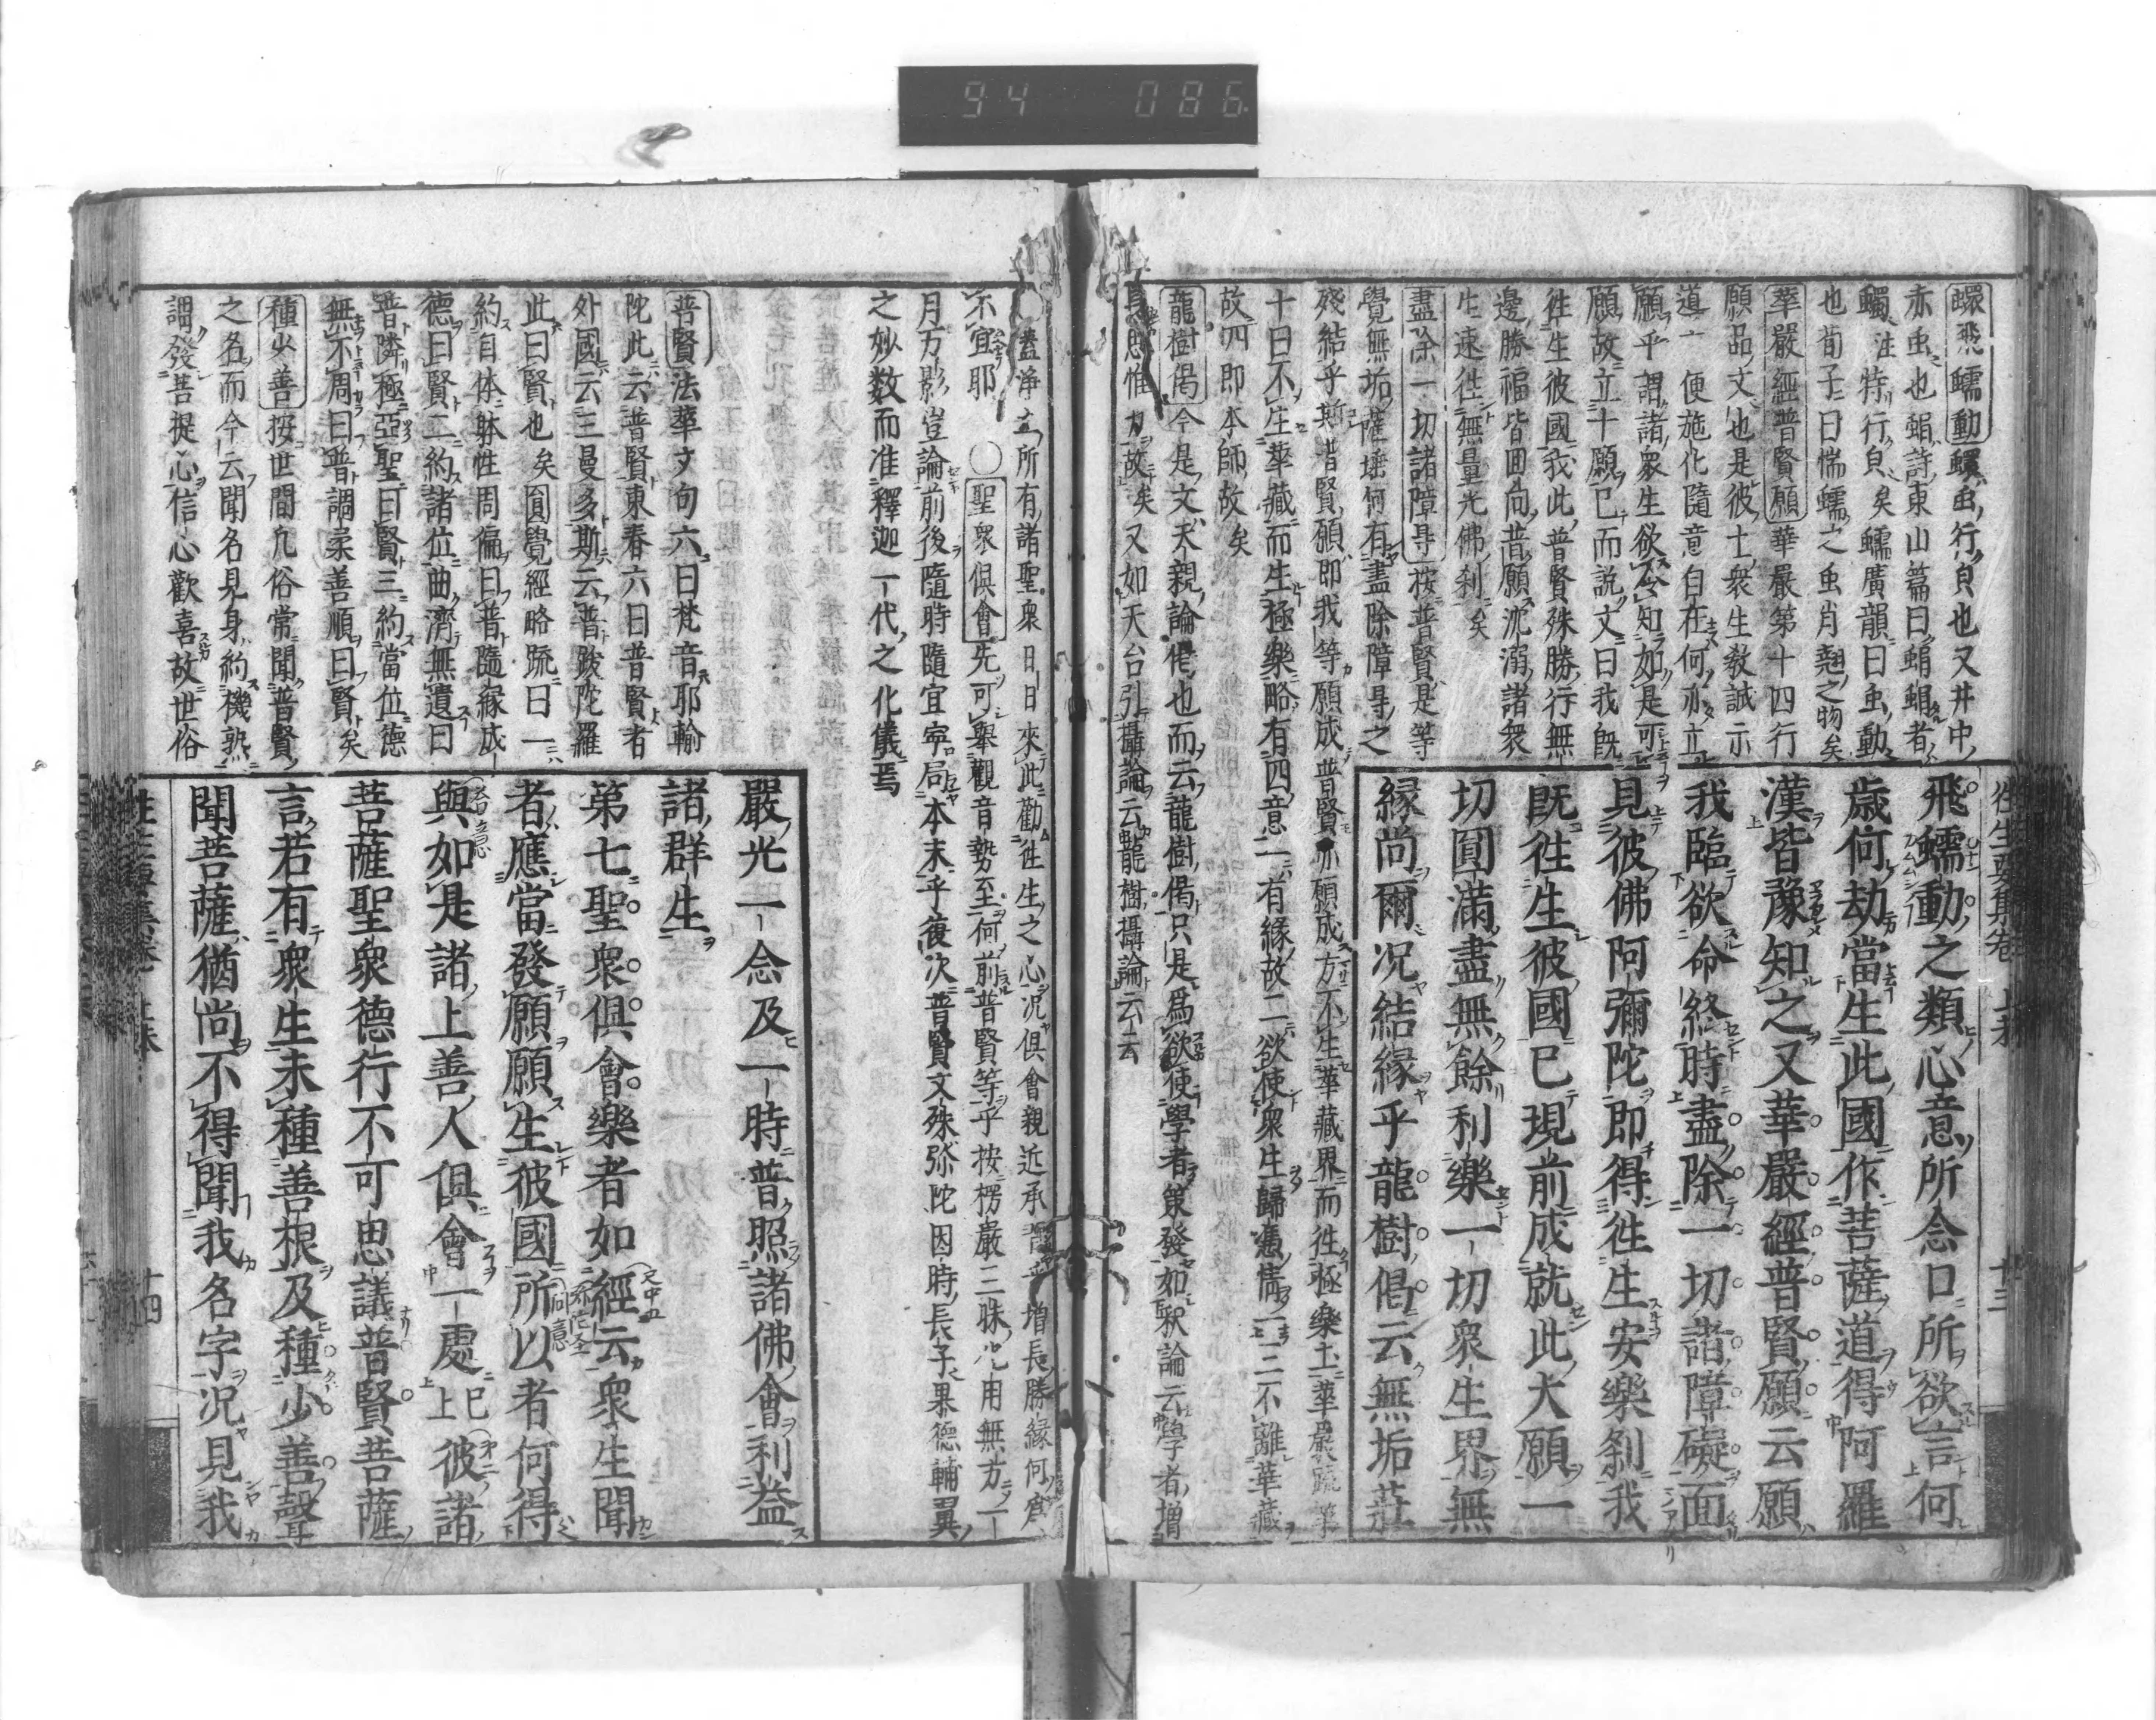 94 086
蠉飛蠕動蠉虫行皃也又井中
赤虫也蜎詩東山篇曰蜎蜎者
蠋注特行皃矣蠕廣韻曰虫動
也荀子曰惴蠕之虫肖翹之物矣
華嚴經普賢願華嚴第十四行
願品文也是彼士衆生教誡示
道一便施化隨意自在何亦立
願乎謂諸衆生欲令知如是可
願故立十願已而説文曰我既
往生彼國我此普賢殊勝行無
邊勝福皆囬向普願沈溺諸衆
生速往無量光佛刹矣
盡除一切諸障㝵按普賢是等
覺無垢薩埵何有盡除障㝵之
殘結乎斯普賢願即我等願成普賢亦願成方不生華藏界而往極樂土華嚴疏
十曰不生華藏而生極樂略有四意一有緣故二欲使衆生歸憑情一三不離華藏
故四即本師故矣
龍樹偈今是文天親論偈也而云龍樹偈只是爲欲使學者策發如釈論云學者增
其思惟力故矣又如天台引攝論云龍樹攝論云云
往生要集卷上本 十三
飛蠕動之類心意所念口所欲言何
歲何劫當生此國作菩薩道得阿羅
漢皆豫知之又華嚴經普賢願云願
我臨欲命終時盡除一切諸障礙面
見彼佛阿彌陀即得往生安樂刹我
既往生彼國已現前成就此大願一
切圓滿盡無餘利樂一切衆生界無
縁尚爾况結縁乎龍樹偈云無垢莊
蓋淨土所有諸聖衆日日來此勸往生之心况俱會親近承増長勝縁何
不宜耶 ○聖衆俱會先可舉觀音勢至何前普賢等乎按楞嚴三昧月用無方一
月万影豈論前後隨時隨宜寧局本末乎復次普賢文殊弥陀因時長子果德輔翼
之妙数而准釋迦一代之化儀焉
普賢法華文句六曰梵音耶輸
陀此云普賢東春六曰普賢者
外國云三曼多斯云普跋陀羅
此曰賢也矣圓覺經略䟽曰一
約自体躰性周偏曰普隨縁成
德曰賢二約諸位曲濟無遺曰
普隣極亞聖曰賢三約當位德
無不周曰普調柔善順曰賢矣
種少善按世間凢俗常聞普賢
之名而今云聞名見身約機熟
謂發菩提心信心歡喜故世俗
嚴光一念及一時普照諸佛會利益
諸群生
第七聖衆俱會樂者如經云衆生聞
者應當發願願生彼國所以者何得
與如是諸上善人俱會一處已上彼諸
菩薩聖衆德行不可思議普賢菩薩
言若有衆生未種善根及種少善聲
聞菩薩猶尚不得聞我名字况見我
十四